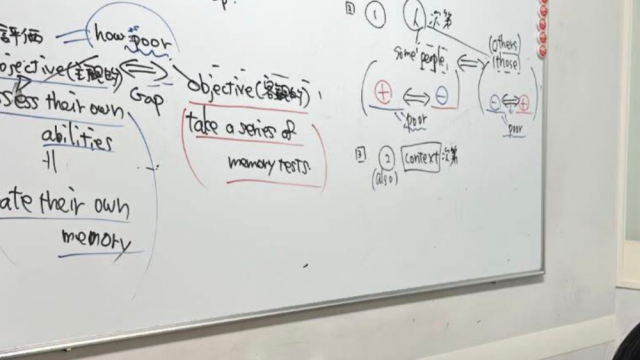 評価
how poor
(主観的)
Gap
objective (客観的)
ssess their own
abilities
take a series of
memory tests
ate their own
memory
① 人次第
some people
(others
those)
+
−
poor
−
+
poor
② context 次第
(also)